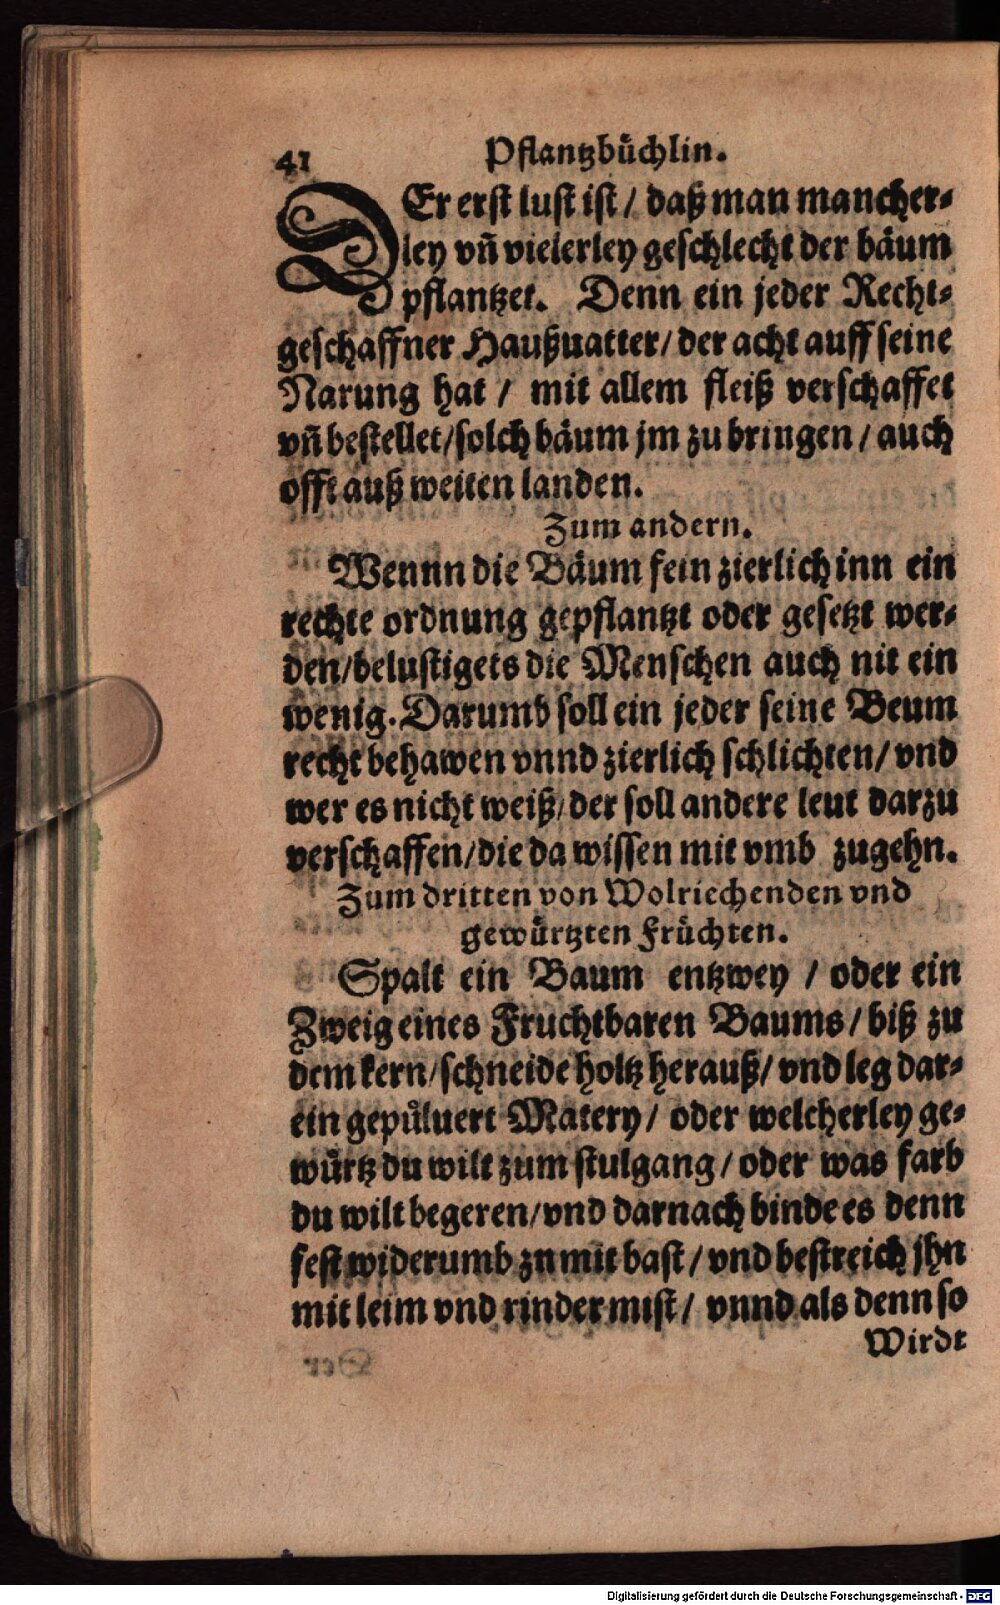 41 Pflantzbüchlin.
DEr erst lust ist / daß man mancher⸗
ley vñ vielerley geschlecht der bäum
pflantzet. Denn ein jeder Recht⸗
geschaffner Haußuatter / der acht auff seine
Narung hat / mit allem fleiß verschaffet
vñ bestellet / solch bäum jm zu bringen / auch
offt auß weiten landen.
Zum andern.
Wennn die Bäum fein zierlich inn ein
rechte ordnung gepflantzt oder gesetzt wer⸗
den / belustigets die Menschen auch nit ein
wenig. Darumb soll ein jeder seine Beum
recht behawen vnnd zierlich schlichten / vnd
wer es nicht weiß / der soll andere leut darzu
verschaffen / die da wissen mit vmb zugehn.
Zum dritten von Wolriechenden vnd
gewürtzten Früchten.
Spalt ein Baum entzwey / oder ein
Zweig eines Fruchtbaren Baums / biß zu
dem kern / schneide holtz herauß / vnd leg dar⸗
ein gepůluert Matery / oder welcherley ge⸗
würtz du wilt zum stulgang / oder was farb
du wilt begeren / vnd darnach binde es denn
fest widerumb zu mit bast / vnd bestreich jhn
mit leim vnd rinder mist / vnnd als denn so
Wirdt
Digitalisierung gefördert durch die Deutsche Forschungsgemeinschaft - DFG